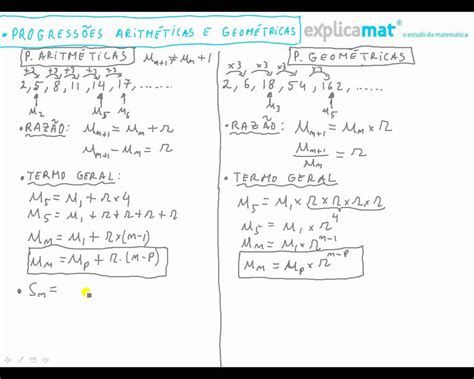 • PROGRESSÕES ARITMÉTICAS E GEOMÉTRICAS
explicamat®
o estudo da matemática
P. ARITMÉTICAS
u_{n+1} ≠ u_n + 1
+3 +3 +3 +3 +3
2, 5, 8, 11, 14, 17, ......
u_2 u_5 u_6
• RAZÃO: u_{n+1} = u_n + r
u_{n+1} - u_n = r
• TERMO GERAL:
u_5 = u_1 + r×4
u_5 = u_1 + r + r + r + r
u_n = u_1 + r×(n-1)
u_n = u_p + r.(n-p)
• S_n =
P. GEOMÉTRICAS
×3 ×3 ×3 ×3
2, 6, 18, 54, 162, ......
u_3 u_5
• RAZÃO: u_{n+1} = u_n × r
u_{n+1} / u_n = r
• TERMO GERAL
u_5 = u_1 × r × r × r × r
u_5 = u_1 × r^4
u_n = u_1 × r^{n-1}
u_n = u_p × r^{n-p}